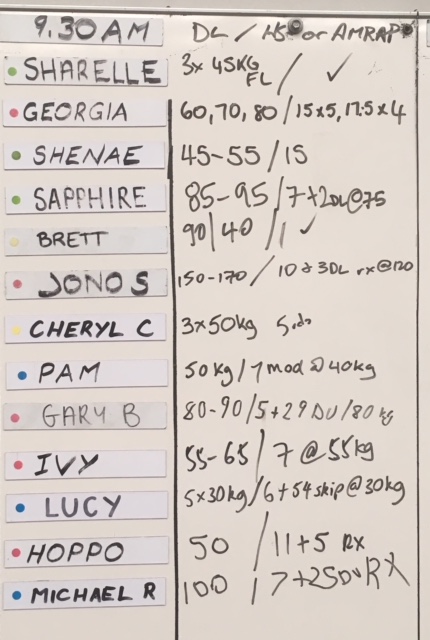 9.30AM DL / HS or AMRAP
SHARELLE 3x 45KG / ✓
FL
GEORGIA 60, 70, 80 / 15x5, 17.5x4
SHENAE 45-55 / 15
SAPPHIRE 85-95 / 7+2DL@75
BRETT 90/40 / 1 ✓
JONO S 150-170 / 10+3DL rx@120
CHERYL C 3x50kg
PAM 50kg / 7 mod @ 40kg
GARY B 80-90/5+29DU/80kg
IVY 55-65 / 7 @ 55kg
LUCY 5x30kg/6+54skip@30kg
HOPPO 50 / 11+5 RX
MICHAEL R 100 / 7+25DU RX